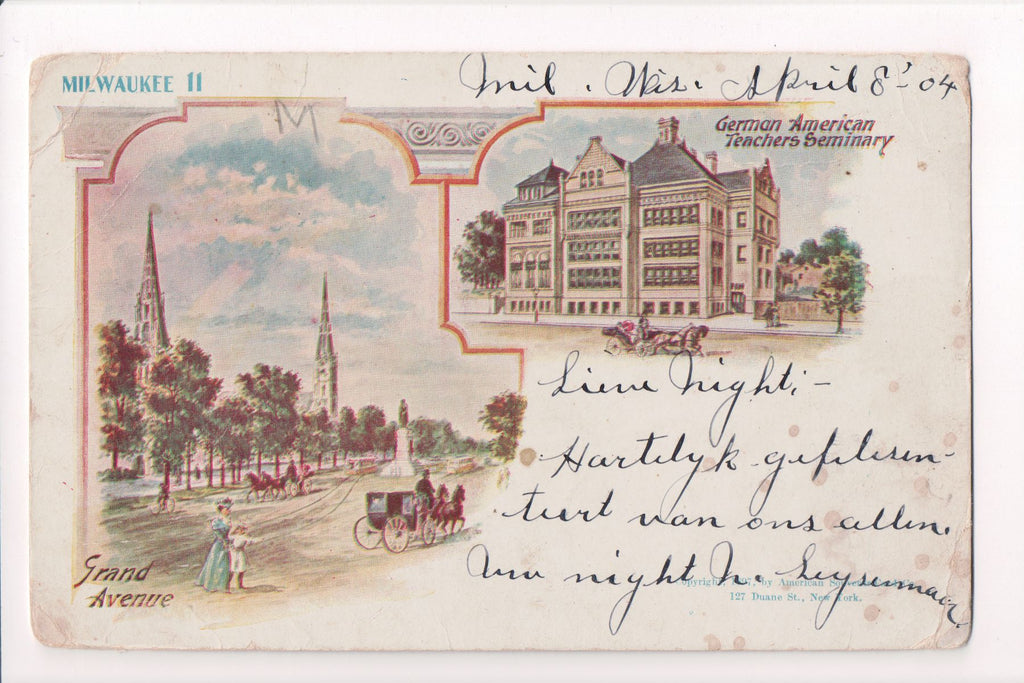 MILWAUKEE 11
Mil. Wis. April 8' 04
M
German American
Teachers Seminary
Lieve Night;-
Hartelyk gefelisen-
teert van ons allen.
Uw night M.
Copyright, 1897, by American Souvenir
127 Duane St., New York.
Grand
Avenue